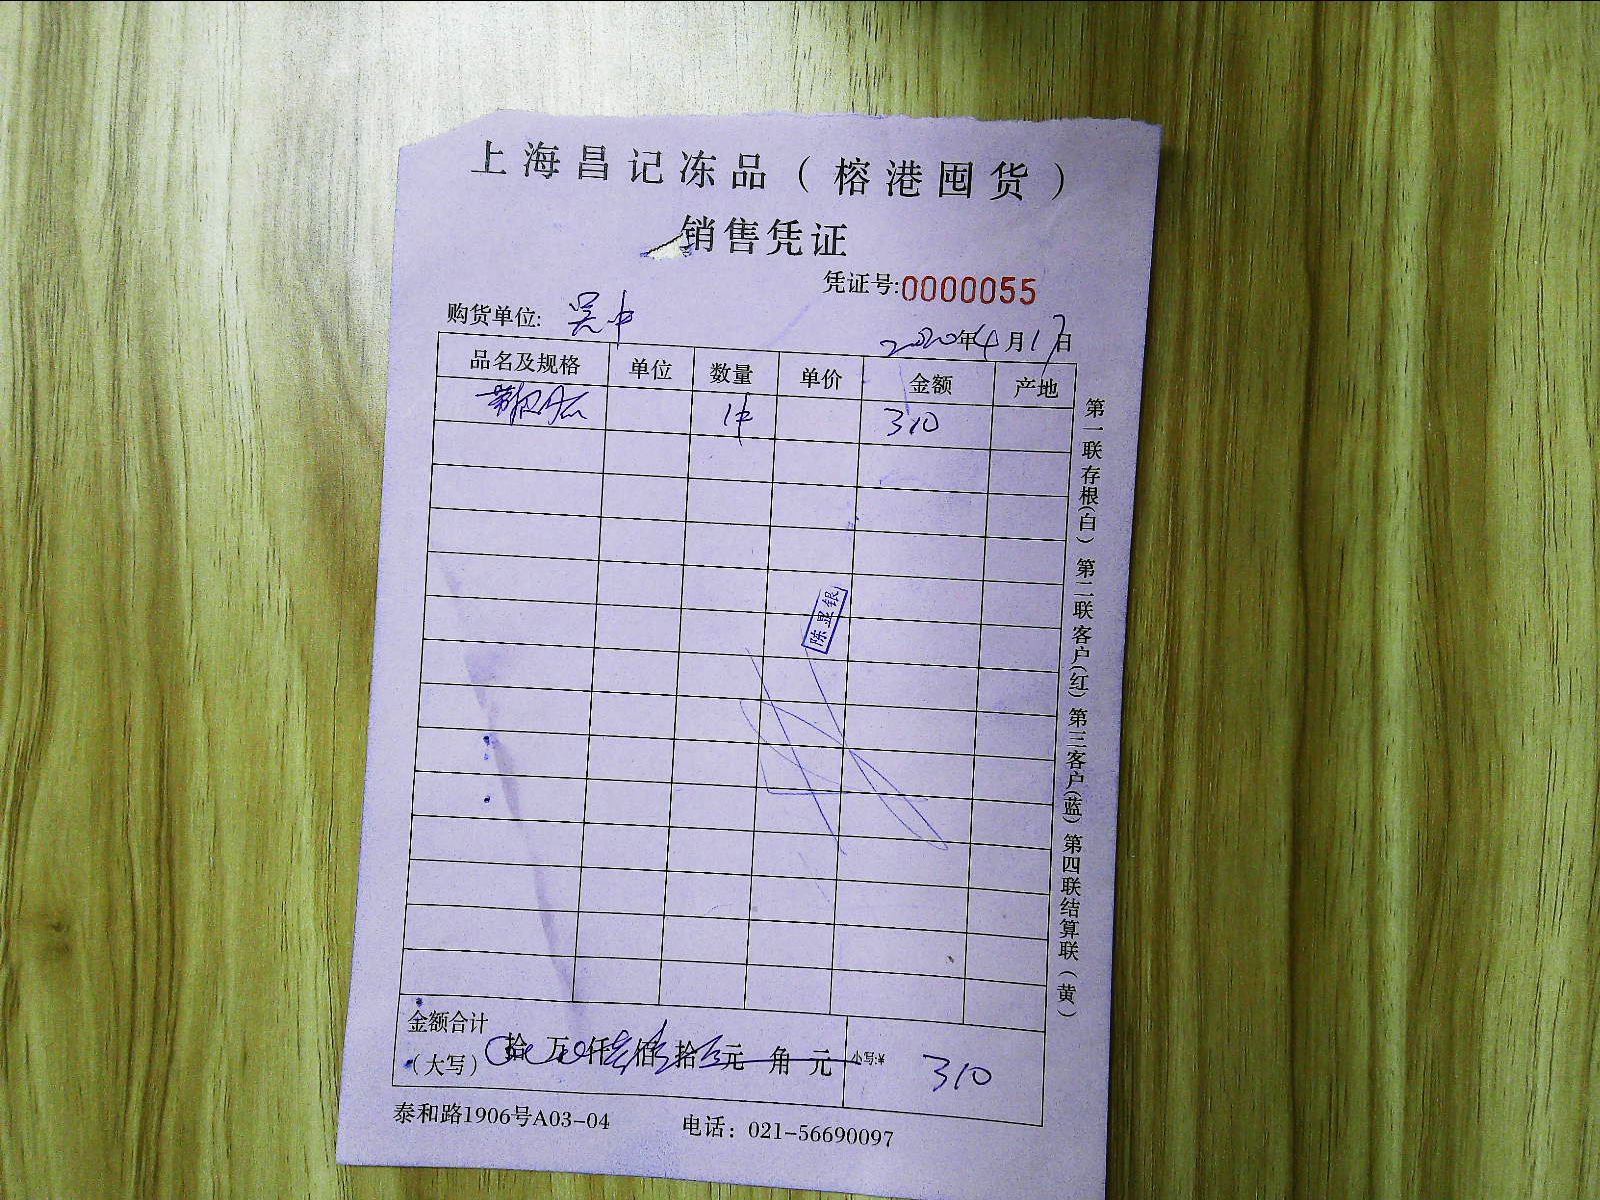 上海昌记冻品（榕港囤货）
销售凭证
凭证号:0000055
购货单位: 吴中
2020年4月17日
品名及规格 单位 数量 单价 金额 产地
1件 310
陈显银
金额合计
（大写） 拾 万 仟 佰 拾 元 角 元 小写:¥ 310
泰和路1906号A03-04 电话：021-56690097
第一联存根(白） 第二联客户(红） 第三客户(蓝） 第四联结算联（黄）